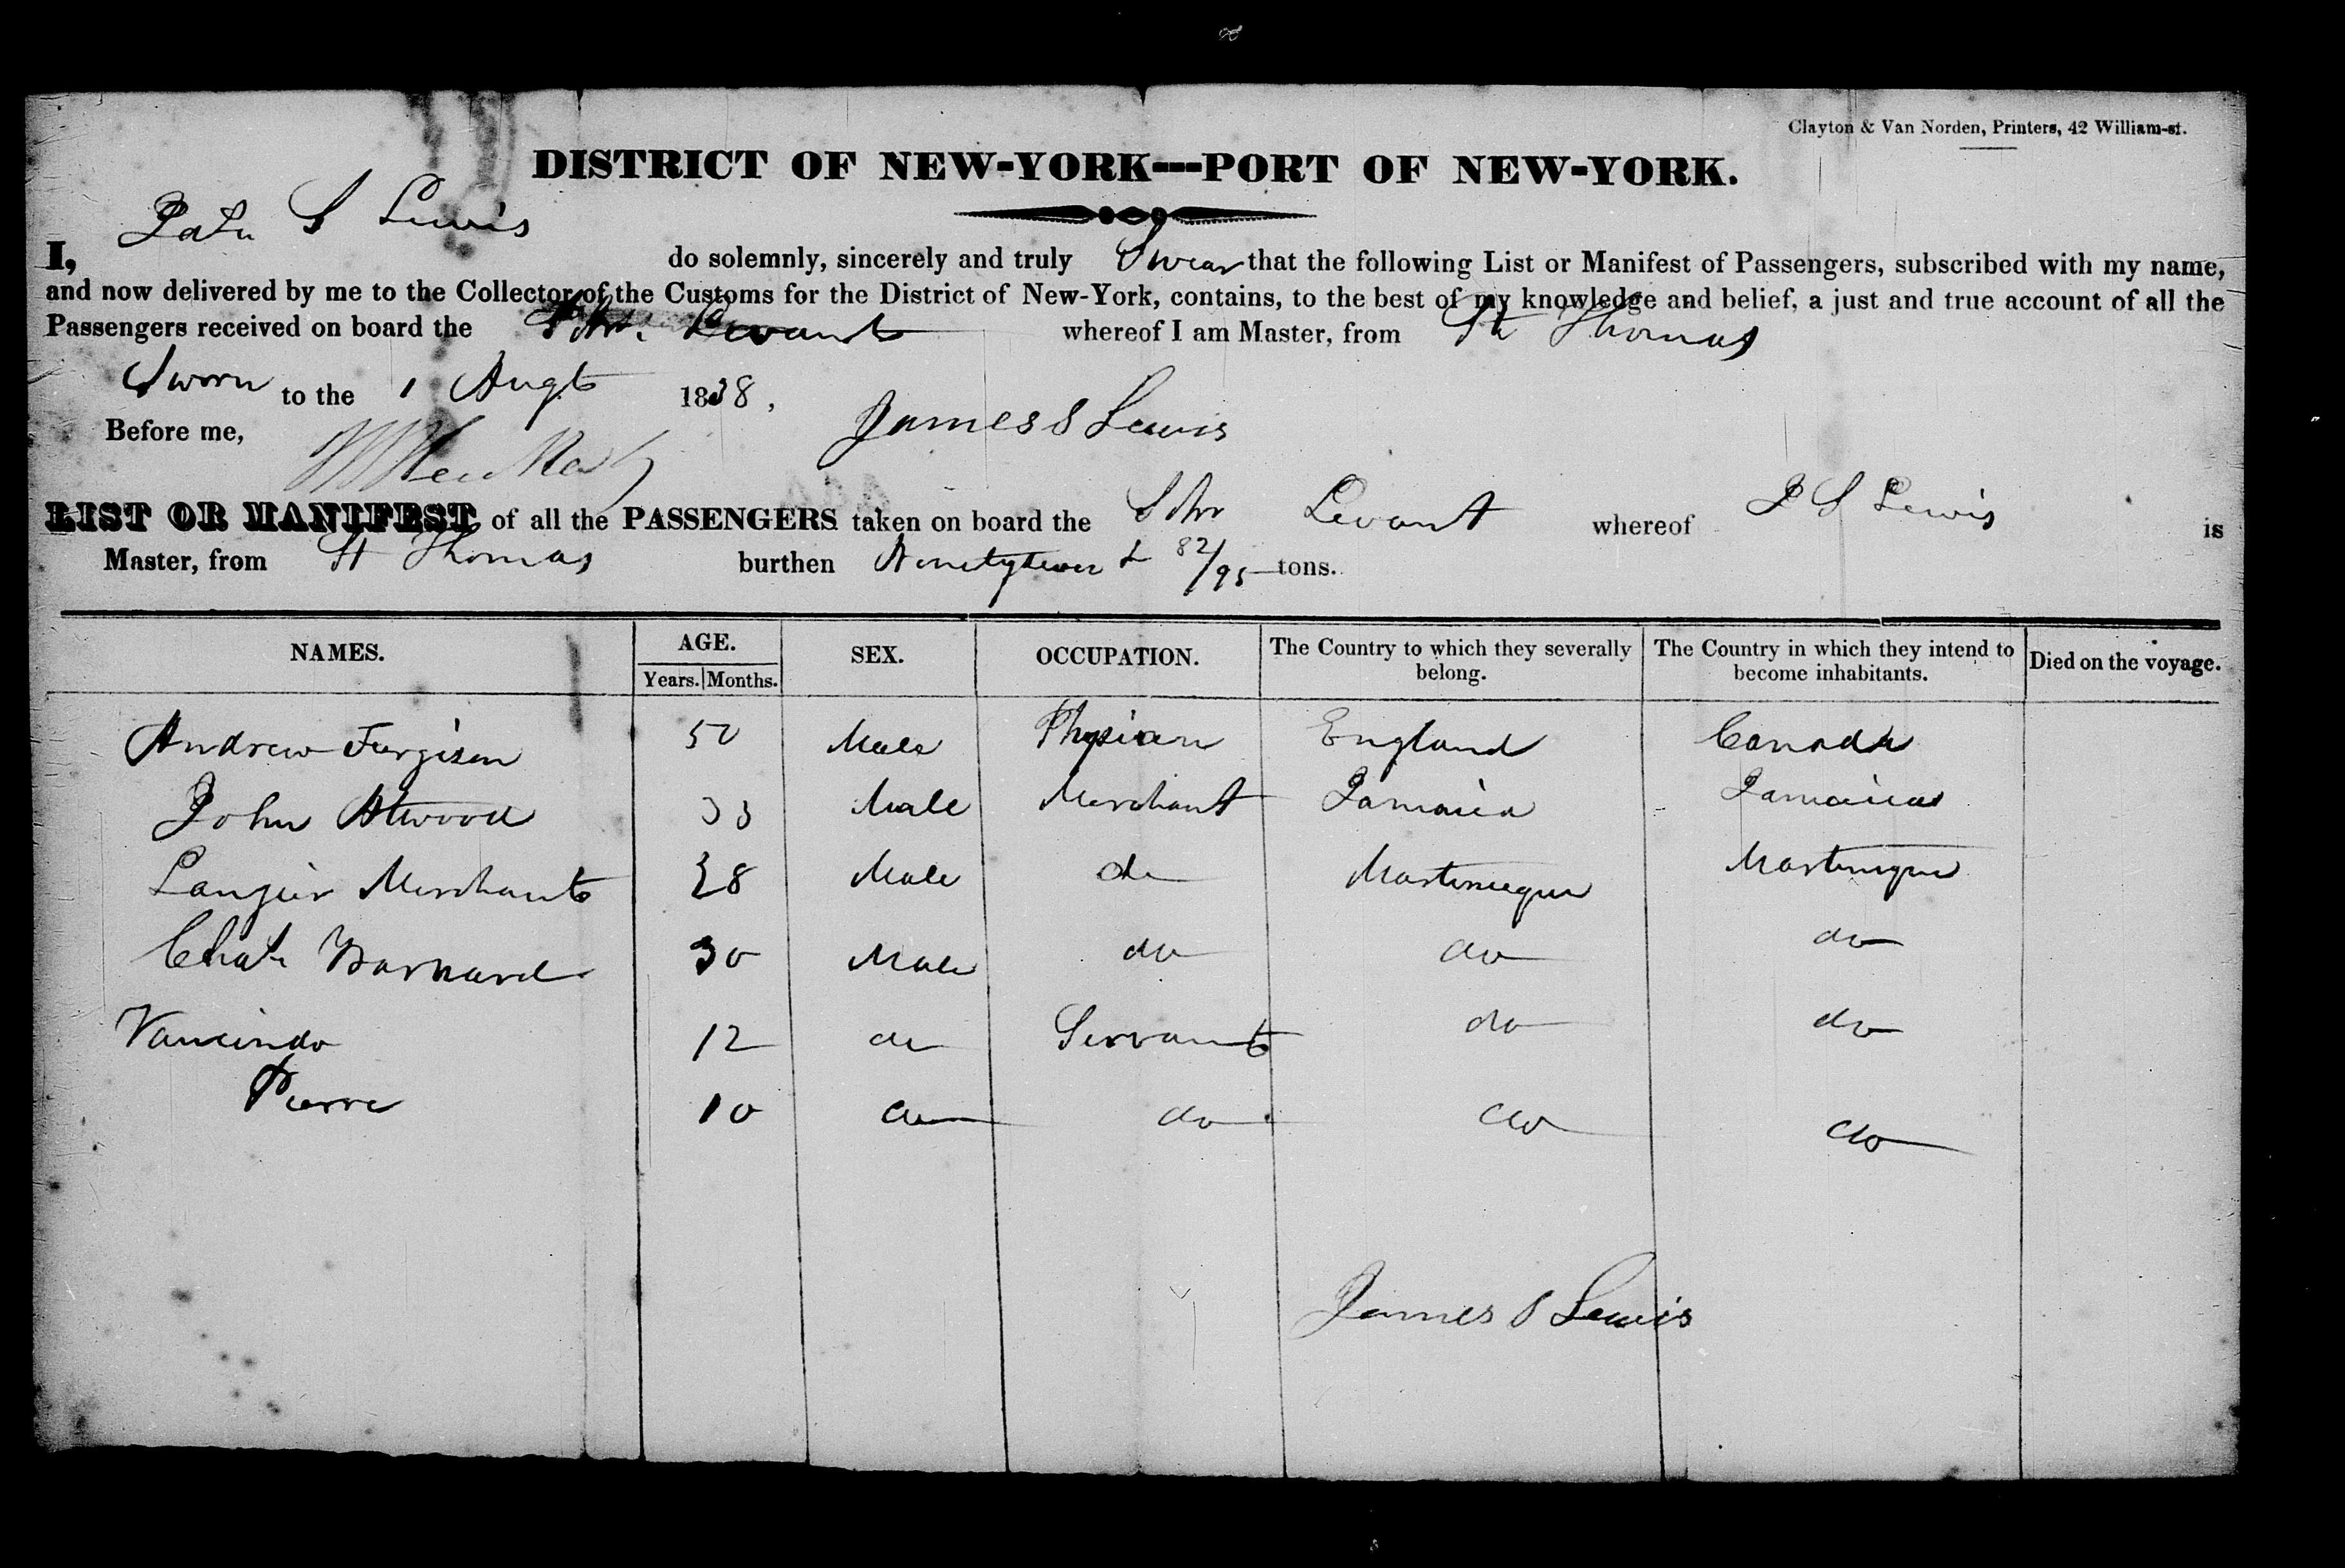 Clayton & Van Norden, Printers, 42 William-st.
DISTRICT OF NEW-YORK---PORT OF NEW-YORK.
I, S Lewis do solemnly, sincerely and truly Swear that the following List or Manifest of Passengers, subscribed with my name,
and now delivered by me to the Collector of the Customs for the District of New-York, contains, to the best of my knowledge and belief, a just and true account of all the
Passengers received on board the Schr. Levant whereof I am Master, from St Thomas
Sworn to the 1 Augt 1838,
James S Lewis
Before me,
LIST OR MANIFEST of all the PASSENGERS taken on board the Schr Levant whereof J S Lewis is
Master, from St Thomas burthen & 82/95 tons.
NAMES. AGE. SEX. OCCUPATION. The Country to which they severally belong. The Country in which they intend to become inhabitants. Died on the voyage.
Years. Months.
Andrew Furgison 50 Male Physian England Canada
John Atwood 33 Male Merchant Jamaica Jamaica
Merchant 38 Male do Martinique Martinique
Barnard 30 Male do do do
12 do Servant do do
Pierre 10 do do do do
James S Lewis